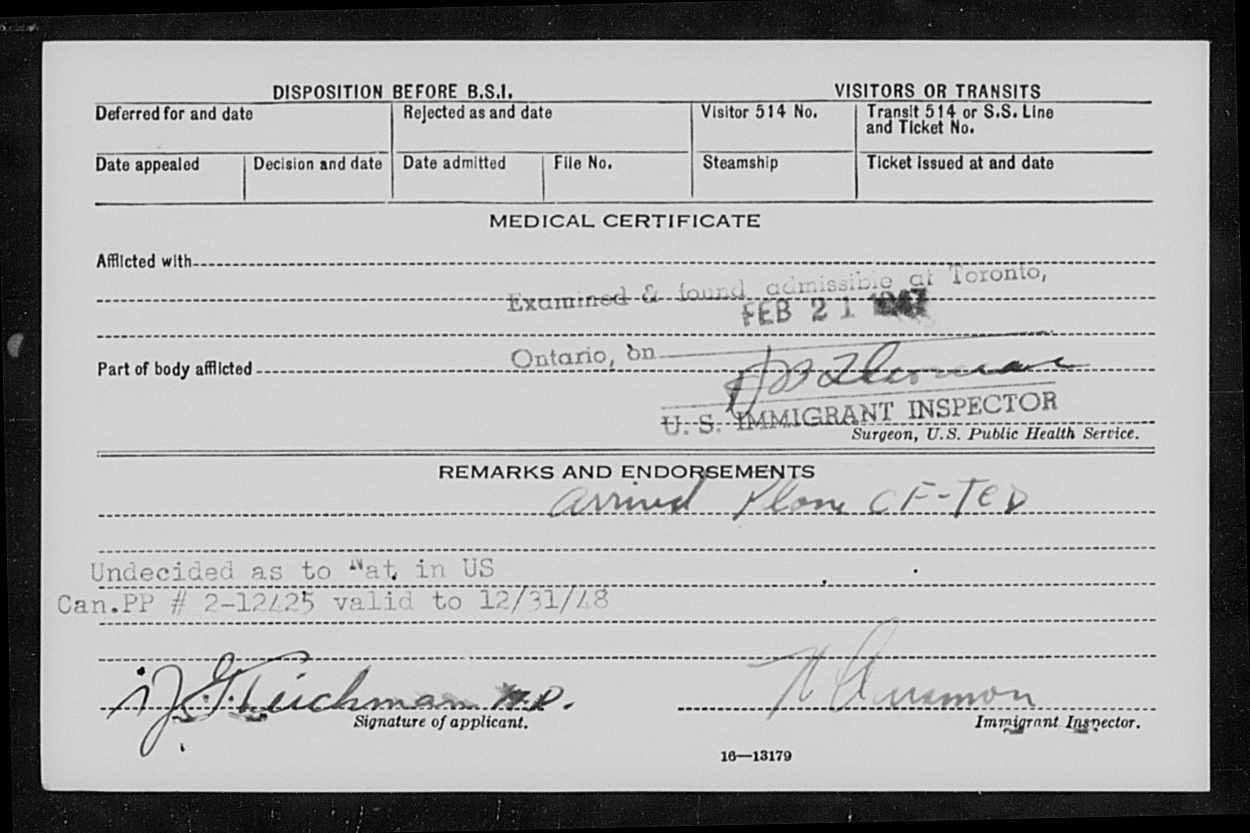 DISPOSITION BEFORE B.S.I. VISITORS OR TRANSITS
Deferred for and date Rejected as and date Visitor 514 No. Transit 514 or S.S. Line
and Ticket No.
Date appealed Decision and date Date admitted File No. Steamship Ticket issued at and date
MEDICAL CERTIFICATE
Afflicted with
Examined & found admissible at Toronto,
FEB 21 1947
Ontario, on
Part of body afflicted
U. S. IMMIGRANT INSPECTOR
Surgeon, U.S. Public Health Service.
REMARKS AND ENDORSEMENTS
Arrived Plane CF-TED
Undecided as to Nat in US
Can.PP # 2-12425 valid to 12/31/48
M.D.
Signature of applicant. Immigrant Inspector.
16—13179